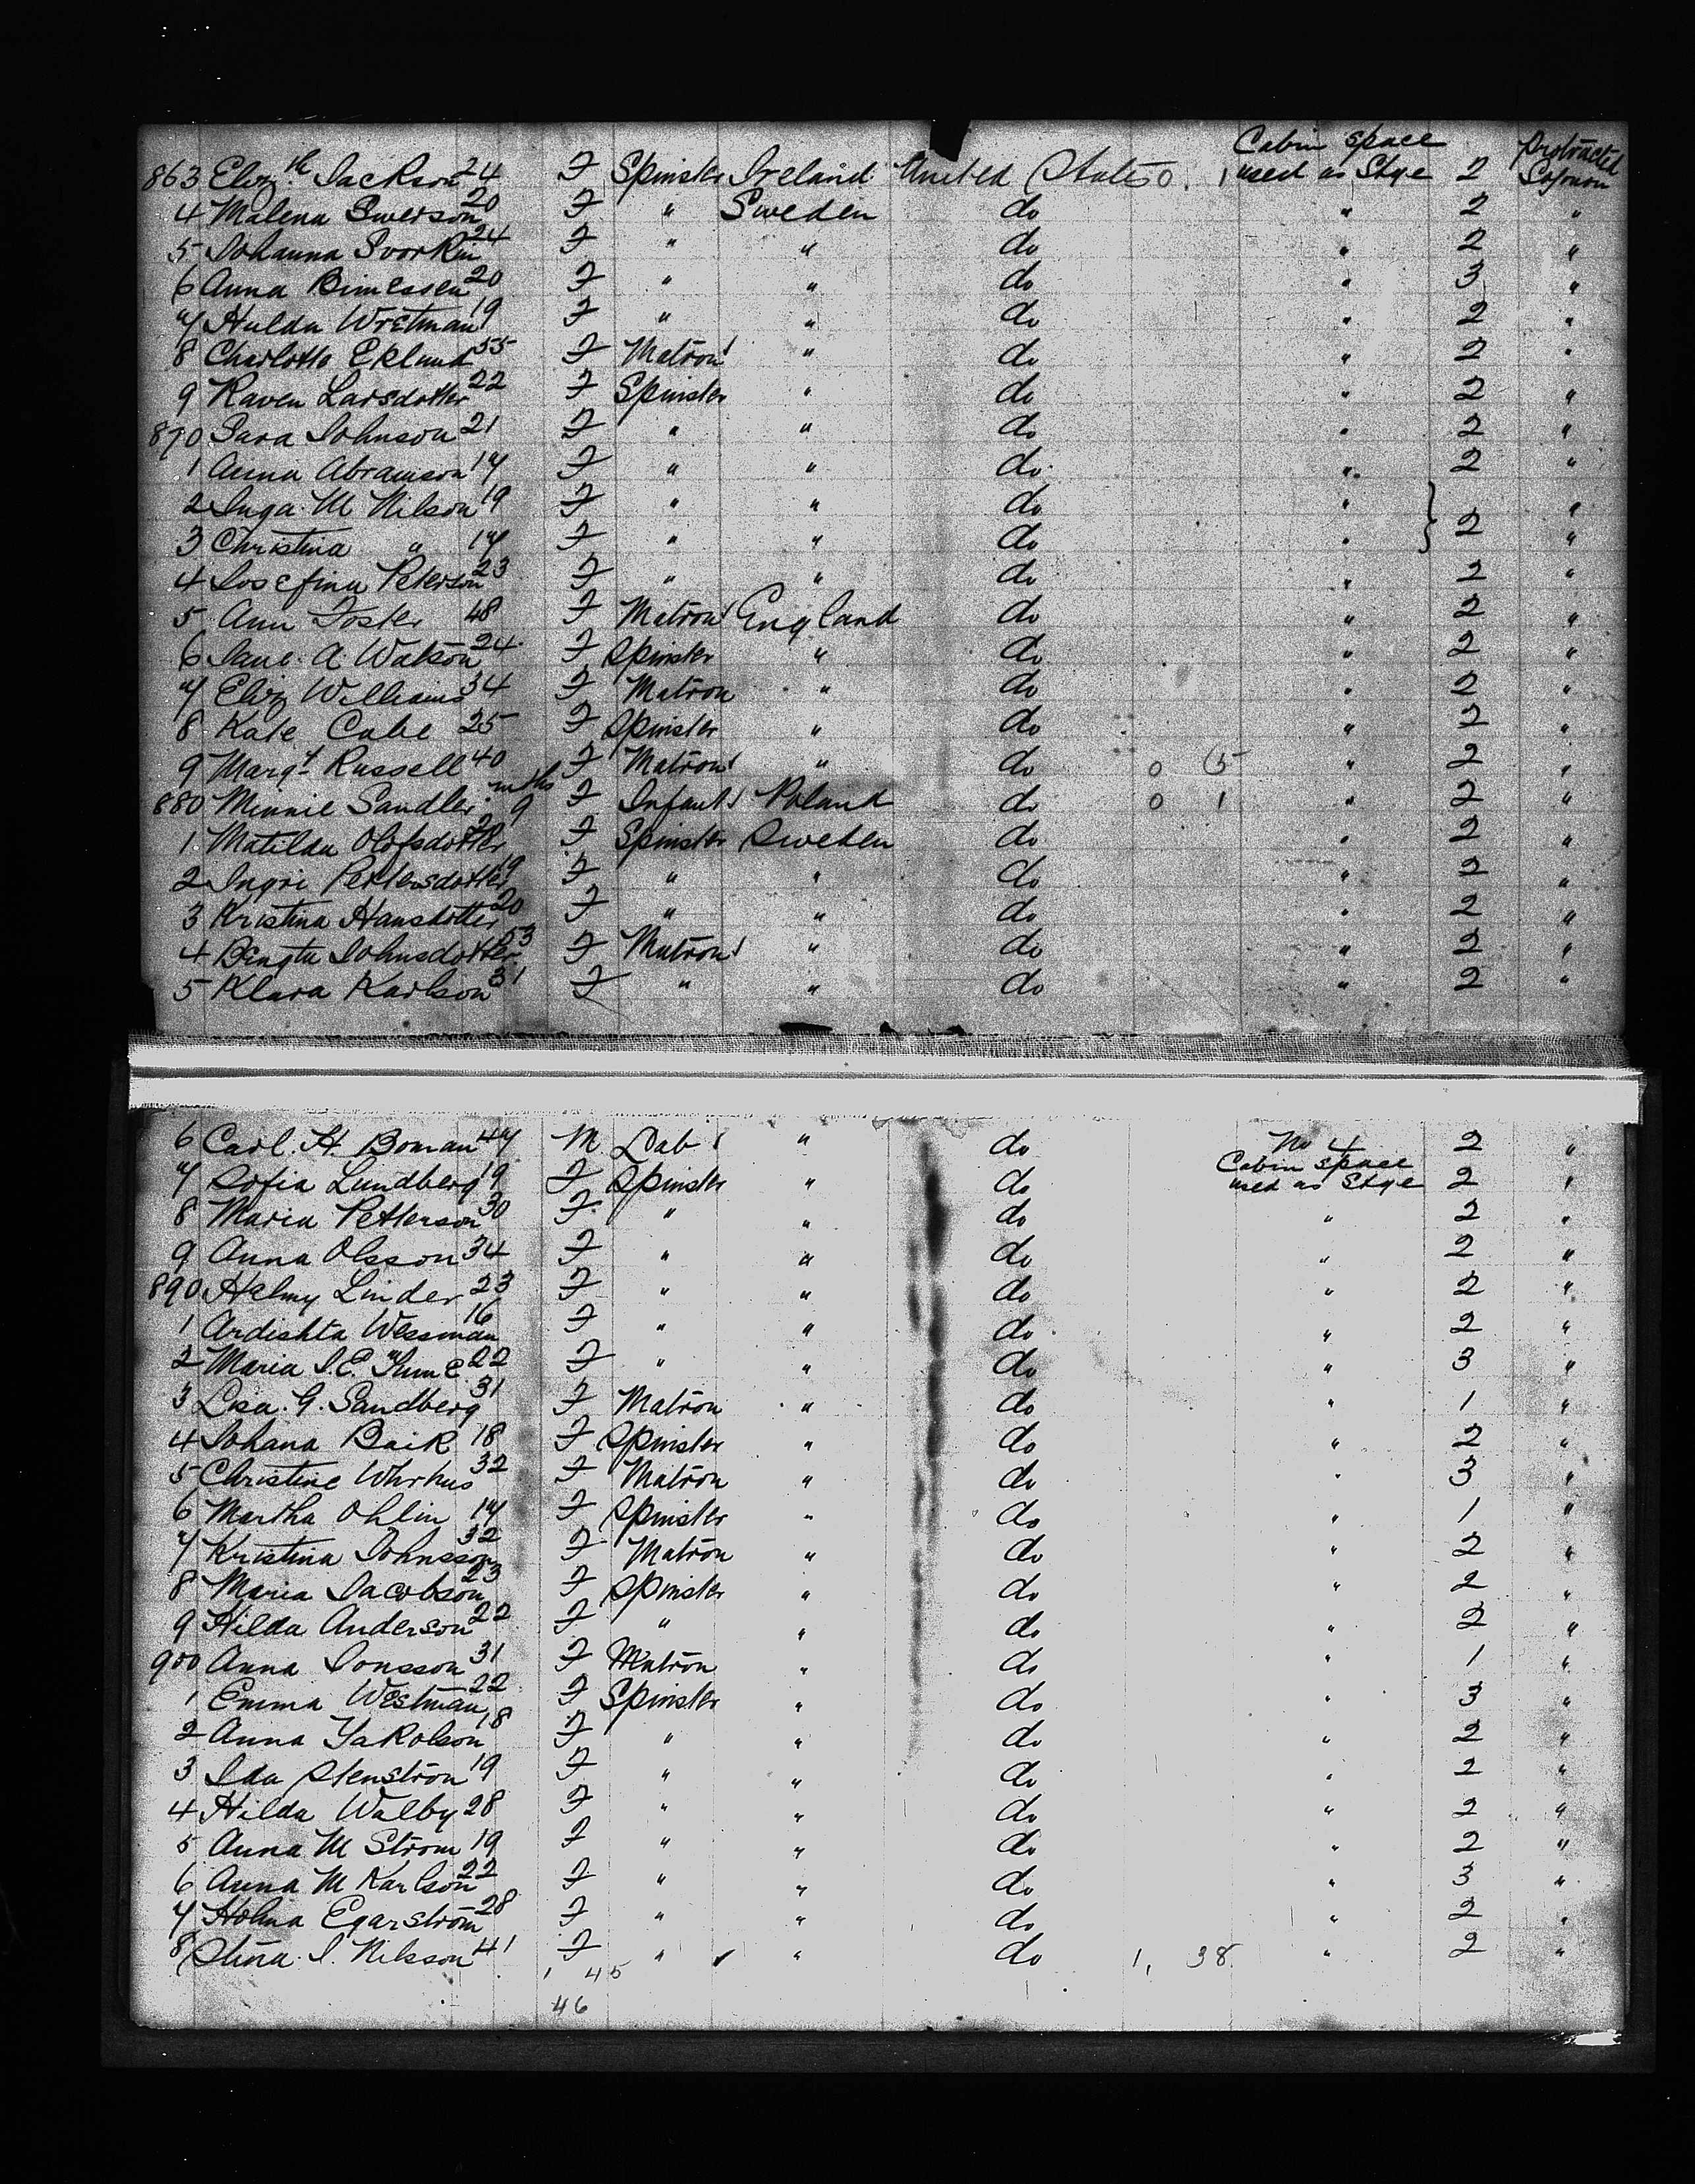 863 Eliz.th Jackson 24 F Spinster Ireland United States 0. 1 Cabin space used as Stge 2 Protracted Sojourn
4 Malena Swerson 20 F " Sweden do " 2 "
5 Johanna Svorkin 24 F " " do " 2 "
6 Anna Bimessen 20 F " " do " 3 "
7 Hulda Wretman 19 F " " do " 2 "
8 Charlotta Eklund 55 F Matron " do " 2 "
9 Karen Larsdotter 22 F Spinster " do " 2 "
870 Sara Johnson 21 F " " do " 2 "
1 Anna Abramson 17 F " " do " 2 "
2 Inga M Nilson 19 F " " do " "
3 Christina " 17 F " " do " } 2 "
4 Josefina Peterson 23 F " " do " 2 "
5 Ann Foster 48 F Matron England do " 2 "
6 Jane. A Watson 24 F Spinster " do " 2 "
7 Eliz Williams 34 F Matron " do " 2 "
8 Kate Cabe 25 F Spinster " do " 2 "
9 Margt Russell 40 F Matron " do 0 5 " 2 "
880 Minnie Sandler mths 9 F Infant Poland do 0 1 " 2 "
1. Matilda Olofsdotter F Spinster Sweden do " 2 "
2 Ingri Pettersdotter 19 F " " do " 2 "
3 Kristina Hansdotter 20 F " " do " 2 "
4 Bengta Johnsdotter 53 F Matron " do " 2 "
5 Klara Karlson 31 F " " do " 2 "
6 Carl. H. Boman 47 M Lab " do No 4 2 "
7 Sofia Lundberg 19 F Spinster " do Cabin space used as Stge 2 "
8 Maria Petterson 30 F " " do " 2 "
9 Anna Olsson 34 F " " do " 2 "
890 Halmy Linder 23 F " " do " 2 "
1 Ardishta Wessman 16 F " " do " 2 "
2 Maria J.E. 22 F " " do " 3 "
3 Lisa. G. Sandberg 31 F Matron " do " 1 "
4 Johana Baik 18 F Spinster " do " 2 "
5 Christine Whrhus 32 F Matron " do " 3 "
6 Martha Ohlin 17 F Spinster " do " 1 "
7 Kristina Johnsson 32 F Matron " do " 2 "
8 Maria Jacobson 23 F Spinster " do " 2 "
9 Hilda Anderson 22 F " " do " 2 "
900 Anna Jonsson 31 F Matron " do " 1 "
1 Emma Westman 22 F Spinster " do " 3 "
2 Anna Jakolson 18 F " " do " 2 "
3 Ida Stenstron 19 F " " do " 2 "
4 Hilda Walby 28 F " " do " 2 "
5 Anna M Strom 19 F " " do " 2 "
6 Anna M Karlson 22 F " " do " 3 "
7 Holma Egarstrom 28 F " " do " 2 "
8 Stina. I. Nilsson 41 F " " do 1, 38 " 2 "
1 45
46